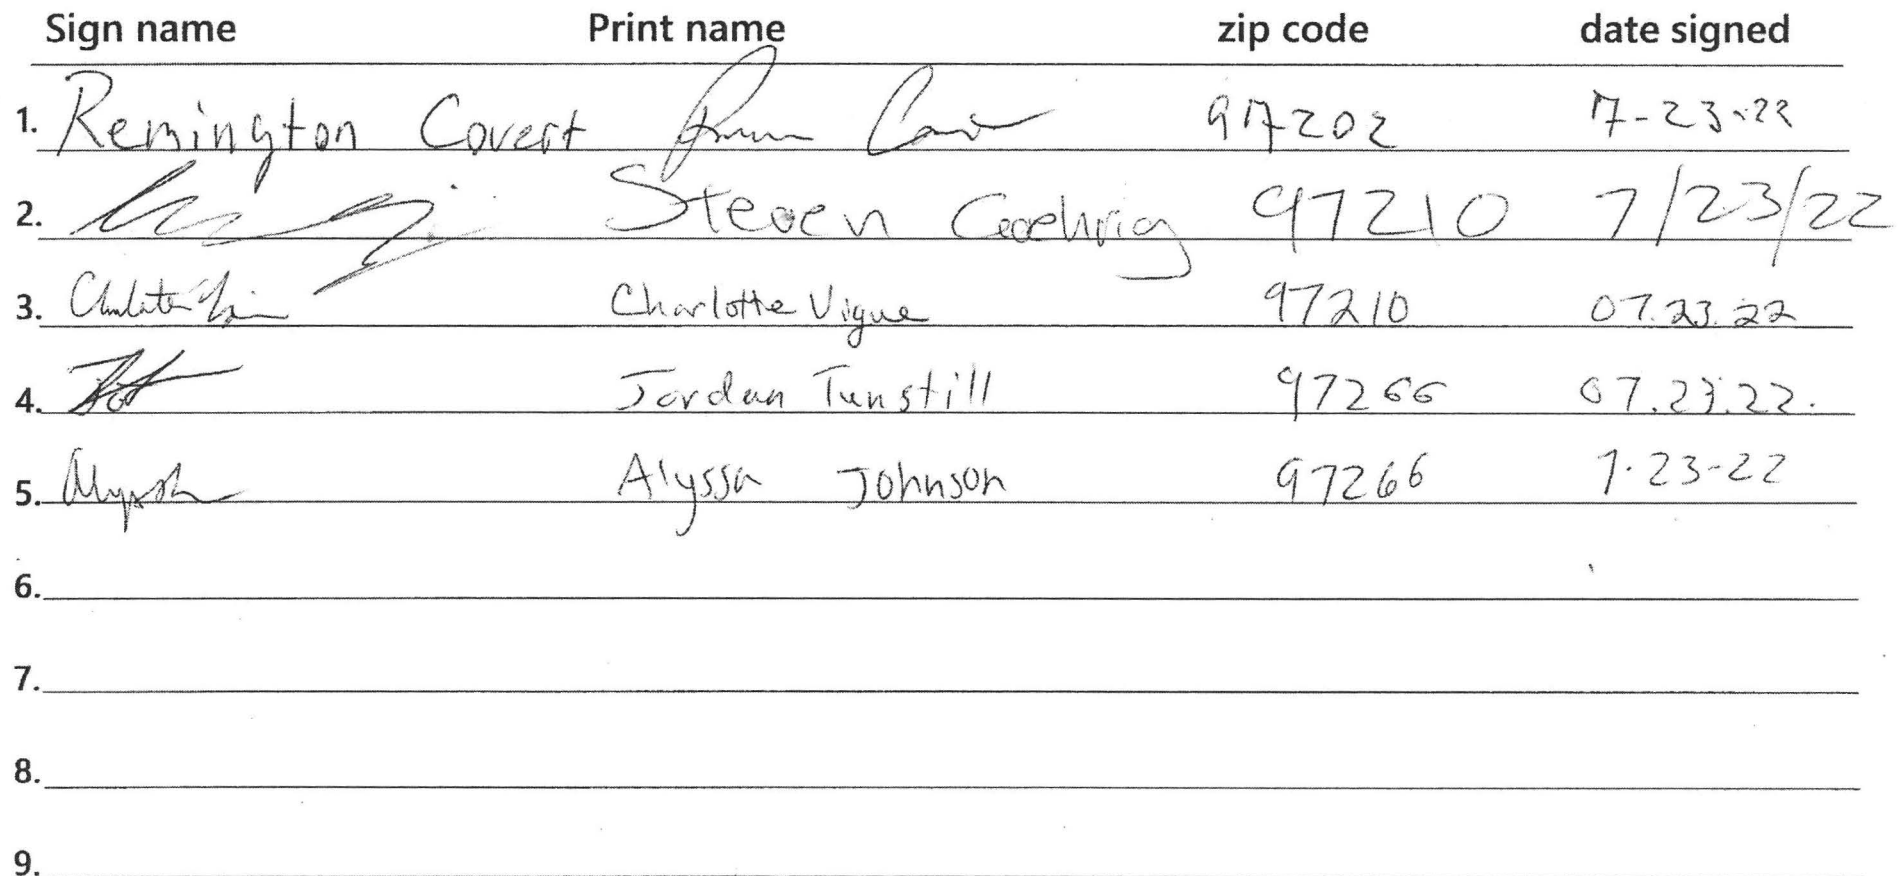 Sign name Print name zip code date signed
1. Remington Covert 97202 7-23-22
2. Steven Goehrig 97210 7/23/22
3. Charlotte Vigue 97210 07.23.22
4. Jordan Tunstill 97266 07.23.22.
5. Alyssa Johnson 97266 7-23-22
6.
7.
8.
9.